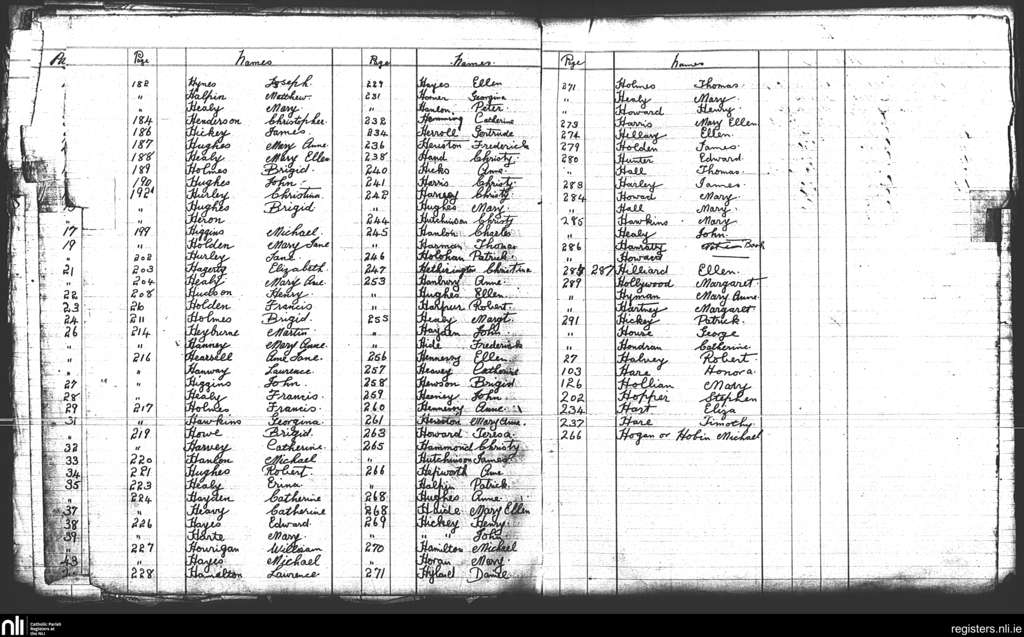 Pg Names
182 Hynes Joseph
" Halpin Matthew
" Healy Mary
184 Henderson Christopher
186 Hickey James
187 Hughes Mary Anne
188 Healy Mary Ellen
189 Holmes Brigid
190 Hughes John
192 Hurley Christian
" Hughes Brigid
" Heron
17 199 Higgins Michael
19 " Holden Mary Jane
" 202 Hurley Jane
21 203 Hagerty Elizabeth
" 204 Healy Mary Anne
22 208 Hudson Henry
23 Holden Francis
24 211 Holmes Brigid
26 214 Heyburne Martin
" Hanney Mary Anne
216 Hearsell Anne Jane
" Hanway Laurence
27 " Higgins John
28 " Healy Francis
29 217 Holmes Francis
31 " Hawkins Georgina
" 219 Howe Brigid
32 " Harvey Catherine
33 220 Hanlon Michael
34 221 Hughes Robert
35 223 Healy Erina
" 224 Hayden Catherine
37 " Heavy Catherine
38 226 Hayes Edward
39 " Harte Mary
" 227 Hourigan William
43 " Hayes Michael
228 Hamilton Laurence
Page Names
229 Hayes Ellen
231 Homer Georgina
" Hanlon Peter
232 Hamming Catherine
234 Herroll Gertrude
236 Heuston Frederick
238 Hand Christy
240 Hicks Anne
241 Harris Christy
242 Harvey Christy
" Hughes Mary
244 Hutchinson Christy
245 Hanlon Charles
" Harman Thomas
246 Holohan Patrick
247 Hetherington Christina
253 Hanbury Anne
" Hughes Ellen
" Halpur Robert
255 Healy Margt
" Hayden John
" Hide Frederick
256 Hennessy Ellen
257 Heavey Catherine
258 Hewson Brigid
259 Heaney John
260 Hennessy Anne
261 Heuston Mary Anne
263 Howard Teresa
265 Hammond Christy
" Hutchinson James
266 Hepworth Anne
" Halpin Patrick
268 Hughes Anne
268 Haide Mary Ellen
269 Hickey Henry
" " John
270 Hamilton Michael
" Horan Mary
271 Hyland Daniel
Page Names
271 Holmes Thomas
" Healy Mary
" Howard Henry
273 Harris Mary Ellen
274 Hellary Ellen
279 Holden James
280 Hunter Edward
" Hall Thomas
283 Harley James
284 Howard Mary
" Hall Mary
285 Hawkins Mary
" Healy John
286 Hanraty Not in Book
" Howard
287 Hilliard Ellen
289 Hollywood Margaret
" Hyman Mary Anne
" Hartney Margaret
291 Hickey Patrick
" Houre George
" Hondran Catherine
27 Halvey Robert
103 Hare Honora
126 Hollian Mary
202 Hopper Stephen
234 Hart Eliza
237 Hare Timothy
266 Hogan or Hobin Michael
nli Catholic Parish Registers at the NLI
registers.nli.ie